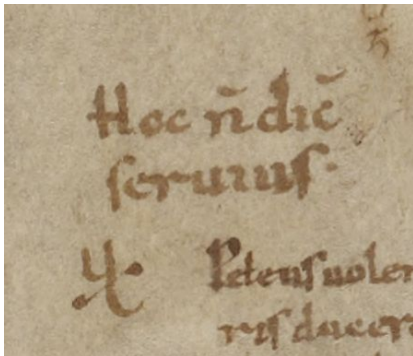 Hoc n̄ dic̄
seruius.
Petens uolen
ris ducer